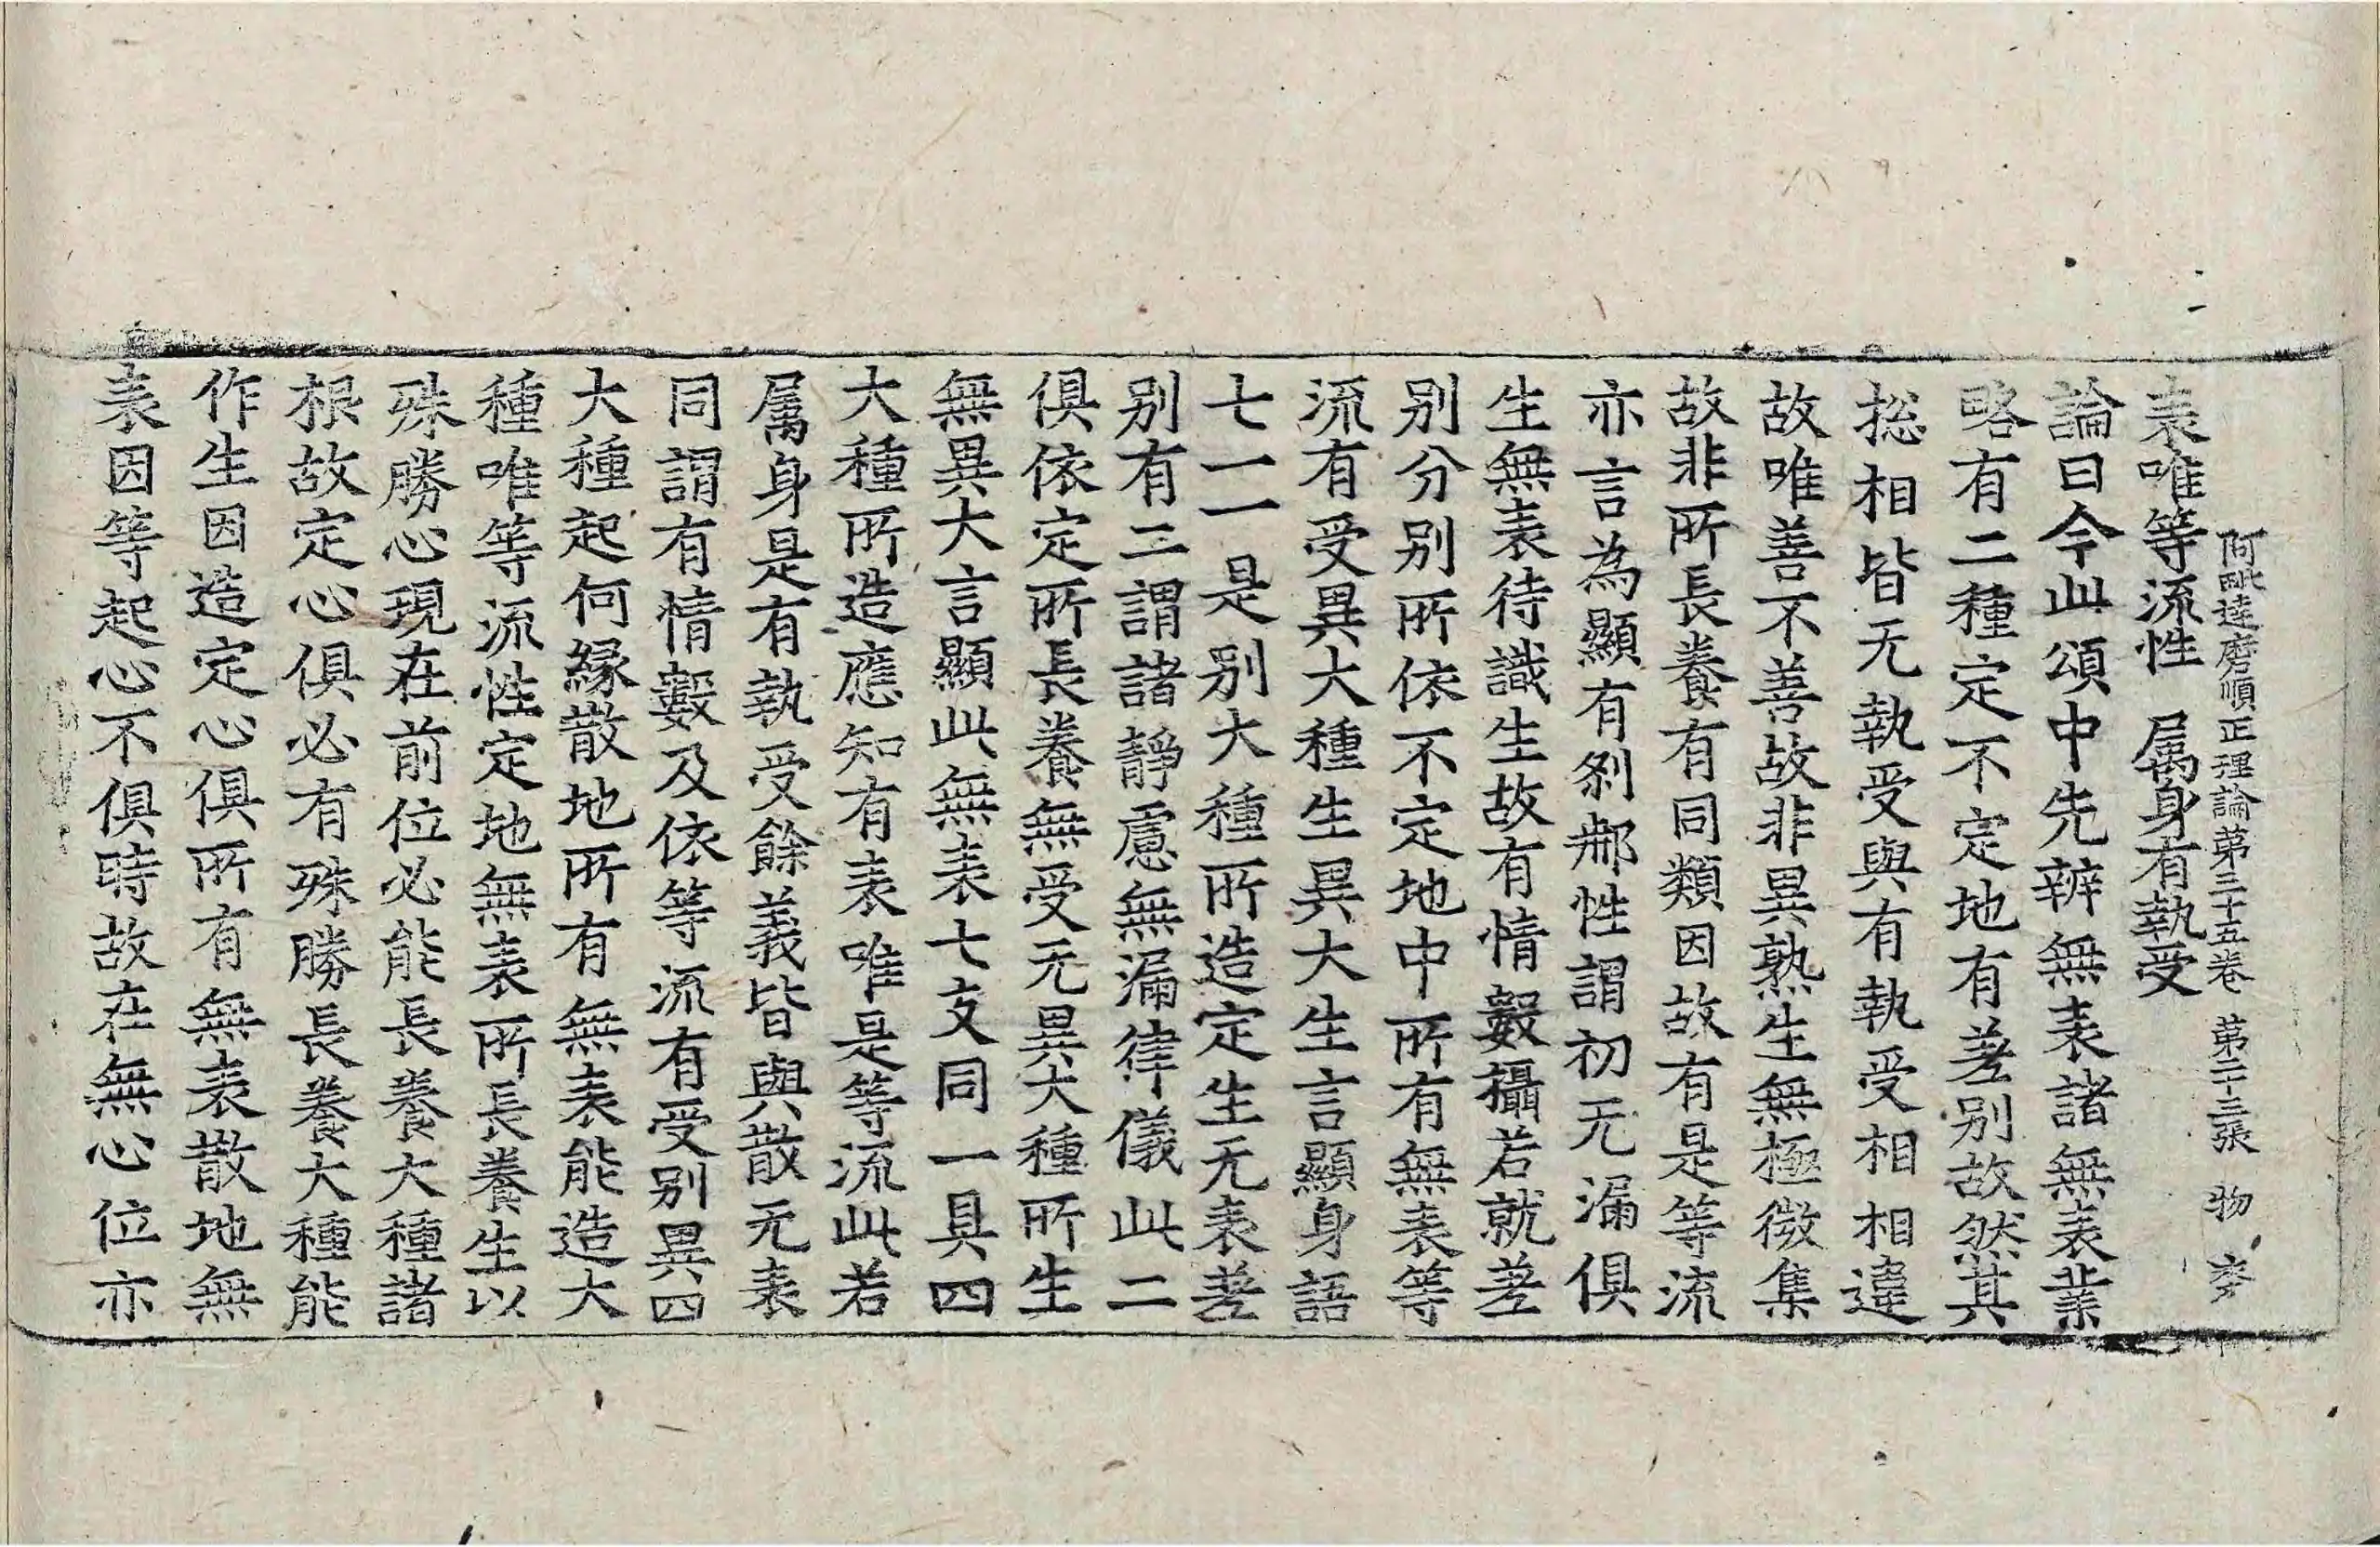 阿毗達磨順正理論第三十五卷　第二十三張　物
表唯等流性　属身有執受
論曰今此頌中先辯無表諸無表業
略有二種定不定地有差别故然其
捴相皆无執受與有執受相相違
故唯善不善故非異熟生無極微集
故非所長養有同類因故有是等流
亦言為顯有剎那性謂初无漏俱
生無表待識生故有情數攝若就差
别分别所依不定地中所有無表等
流有受異大種生異大生言顯身語
七一一是别大種所造定生无表差
别有二謂諸静慮無漏律儀此二
俱依定所長養無受无異大種所生
無異大言顯此無表七支同一具四
大種所造應知有表唯是等流此若
属身是有執受餘義皆與散无表
同謂有情數及依等流有受别異四
大種起何緣散地所有無表能造大
種唯等流性定地無表所長養生以
殊勝心現在前位必能長養大種諸
根故定心俱必有殊勝長養大種能
作生因造定心俱所有無表散地無
表因等起心不俱時故在無心位亦